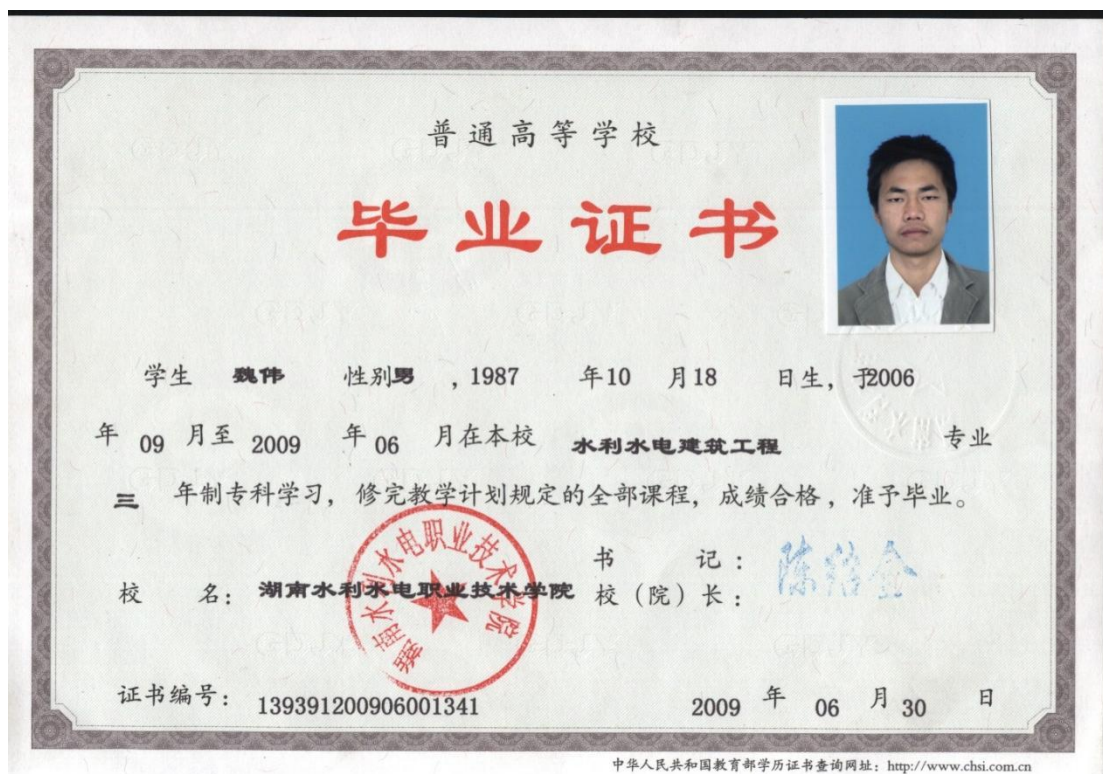 普通高等学校
毕业证书
学生 魏伟 性别男 ,1987 年10 月18 日生, 于2006
年 09 月至 2009 年 06 月在本校 水利水电建筑工程 专业
三 年制专科学习, 修完教学计划规定的全部课程, 成绩合格, 准予毕业。
书 记:
校 名: 湖南水利水电职业技术学院 校(院)长: 陈绍金
湖南水利水电职业技术学院
证书编号: 139391200906001341 2009 年 06 月 30 日
中华人民共和国教育部学历证书查询网址: http://www.chsi.com.cn